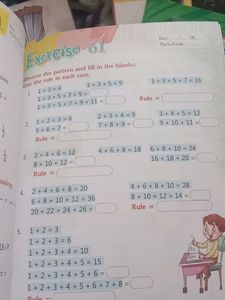 Exercise - 61
Observe the pattern and fill in the blanks:
Give the rule in each case.
1. 1 + 3 = 4 1 + 3 + 5 = 9 1 + 3 + 5 + 7 = 16
1 + 3 + 5 + 7 + 9 =
1 + 3 + 5 + 7 + 9 + 11 = Rule =
2. 1 + 2 + 3 = 6 2 + 3 + 4 = 9 3 + 4 + 5 = 12
5 + 6 + 7 = 7 + 8 + 9 = 9 + 10 + 11 =
Rule =
3. 2 + 4 + 6 = 12 4 + 6 + 8 = 18 6 + 8 + 10 = 24
8 + 10 + 12 = 16 + 18 + 20 =
Rule =
4. 2 + 4 + 6 + 8 = 20 4 + 6 + 8 + 10 = 28
6 + 8 + 10 + 12 = 36 8 + 10 + 12 + 14 =
20 + 22 + 24 + 26 = Rule =
5. 1 + 2 = 3
1 + 2 + 3 = 6
1 + 2 + 3 + 4 = 10
1 + 2 + 3 + 4 + 5 = 15
1 + 2 + 3 + 4 + 5 + 6 =
1 + 2 + 3 + 4 + 5 + 6 + 7 + 8 =
Rule =